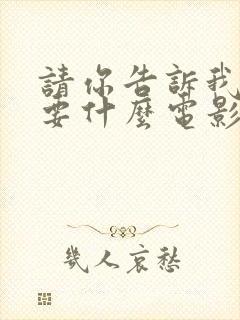 請你告訴我
要什麼電影
幾人哀愁